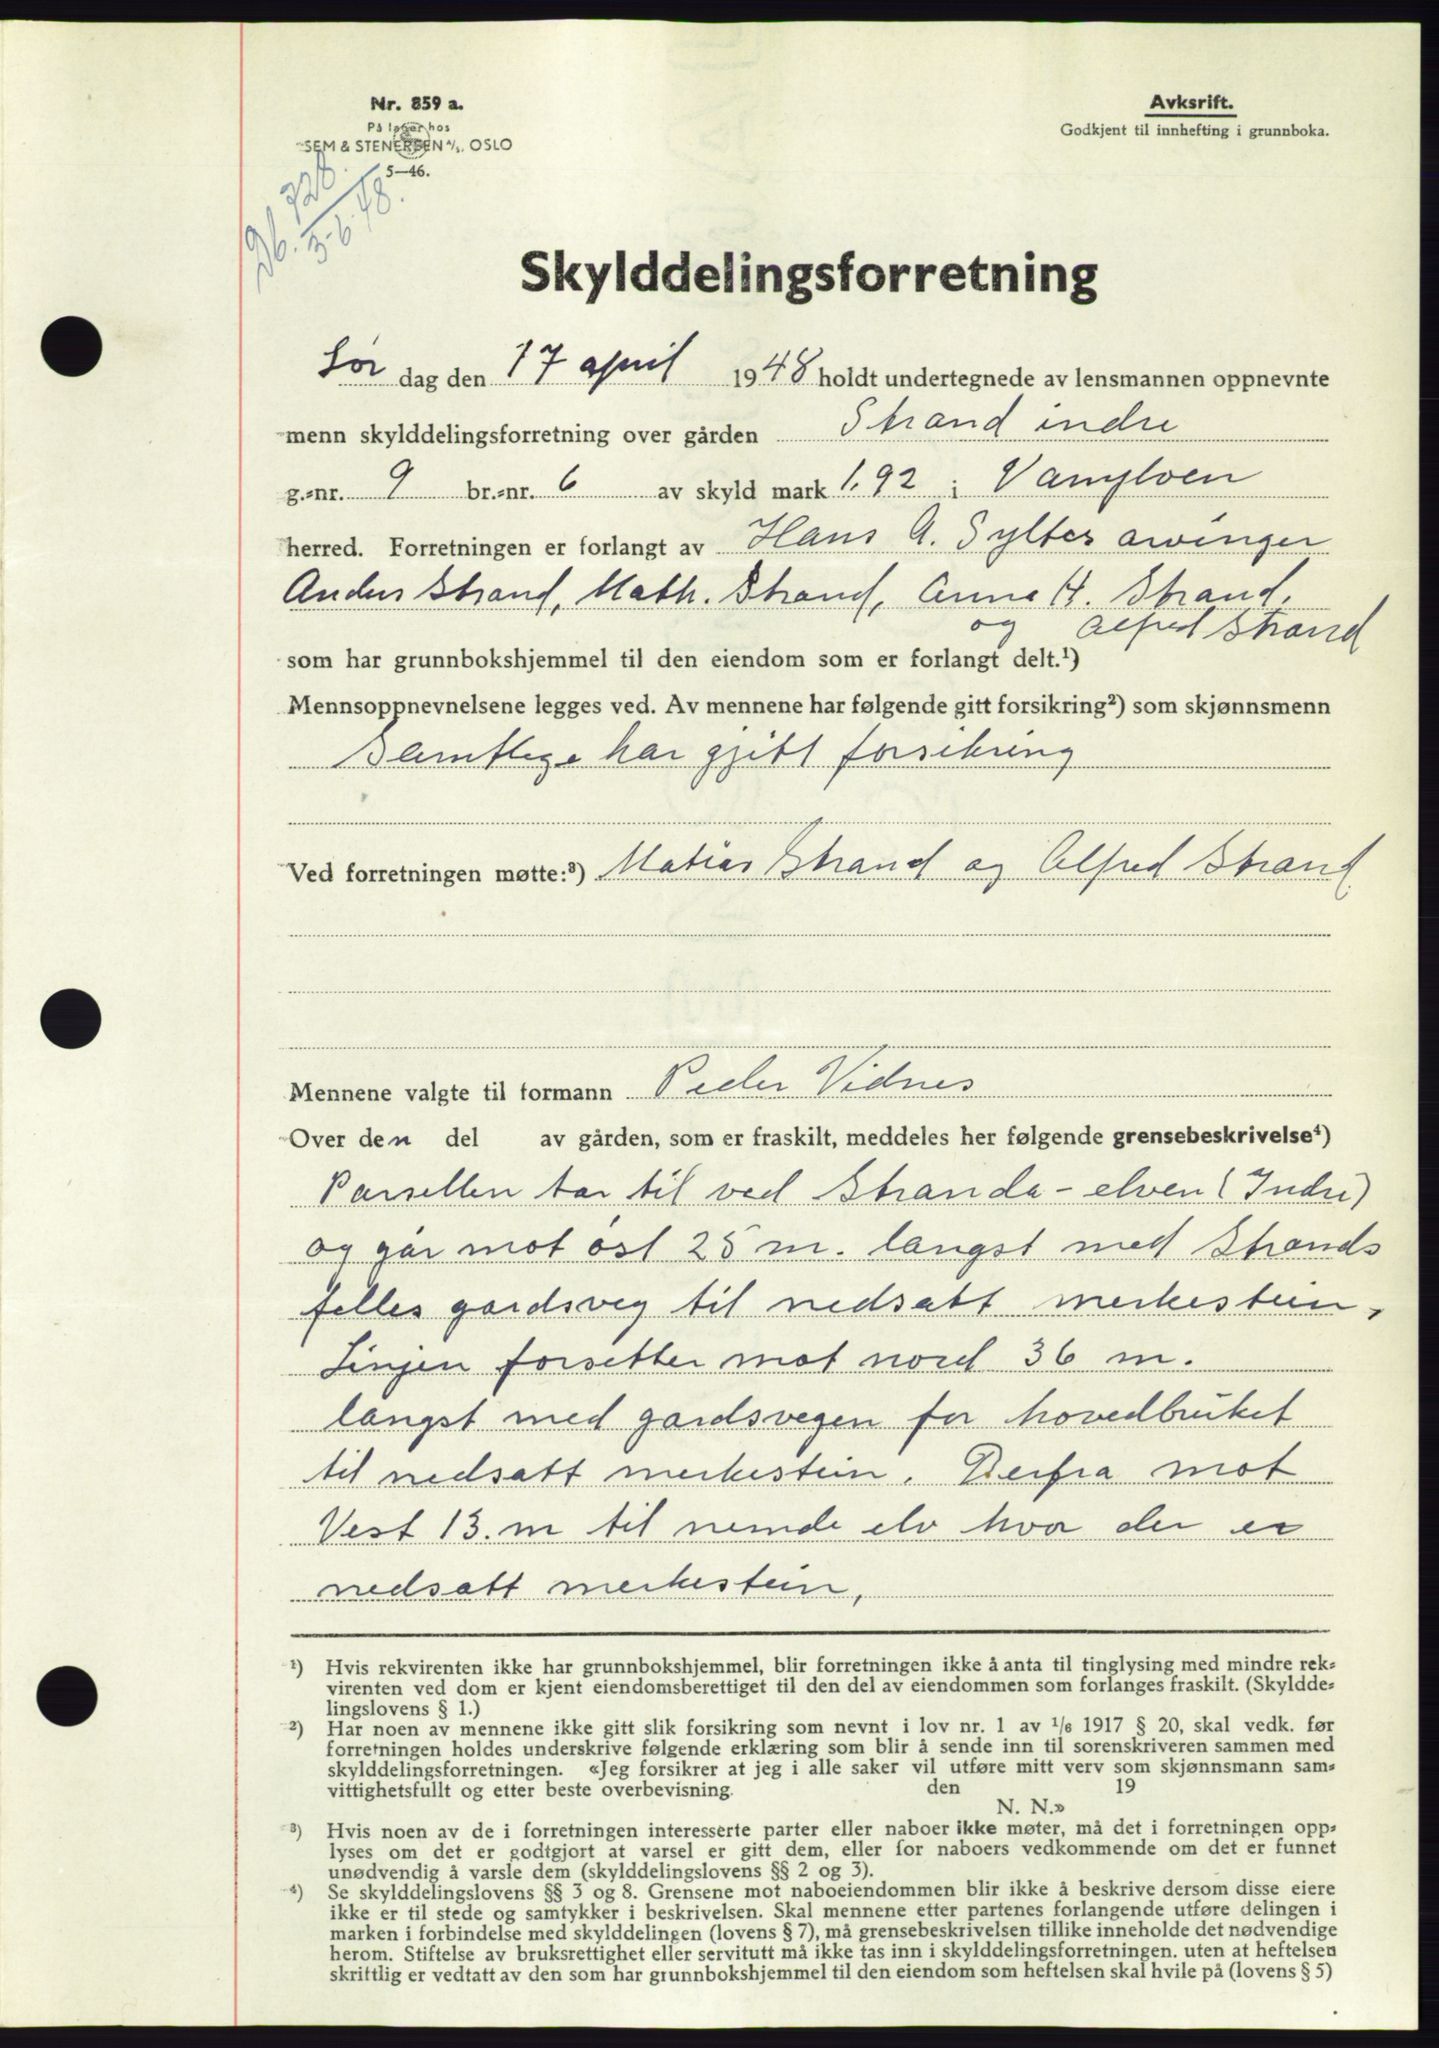 Nr. 859 a.
På lager hos
SEM & STENERSEN A/S, OSLO
5—46.
Avksrift.
Godkjent til innhefting i grunnboka.
Db. 728.
3-6-48.
Skylddelingsforretning
Lør dag den 17 april 1948 holdt undertegnede av lensmannen oppnevnte
menn skylddelingsforretning over gården Strand indre
g.=nr. 9 br.=nr. 6 av skyld mark 1.92 i Vanylven
herred. Forretningen er forlangt av Hans A. Syltes arvinger
Anders Strand, Math. Strand, Anna H. Strand,
og Alfred Strand
som har grunnbokshjemmel til den eiendom som er forlangt delt.¹)
Mennsoppnevnelsene legges ved. Av mennene har følgende gitt forsikring²) som skjønnsmenn
Samtlege har gjitt forsikring
Ved forretningen møtte:³) Matias Strand og Alfred Strand
Mennene valgte til formann Peder Vidnes
Over den del av gården, som er fraskilt, meddeles her følgende grensebeskrivelse⁴)
Parsellen tar til ved Stranda-elven (Indre)
og går mot øst 25 m. langst med Strands
felles gardsveg til nedsatt merkestein,
Linjen forsetter mot nord 36 m.
langst med gardsvegen for hovedbruket
til nedsatt merkestein. Derfra mot
Vest 13. m til nemde elv hvor der er
nedsatt merkestein,
¹) Hvis rekvirenten ikke har grunnbokshjemmel, blir forretningen ikke å anta til tinglysing med mindre rek=
virenten ved dom er kjent eiendomsberettiget til den del av eiendommen som forlanges fraskilt. (Skyldde=
lingslovens § 1.)
²) Har noen av mennene ikke gitt slik forsikring som nevnt i lov nr. 1 av 1/6 1917 § 20, skal vedk. før
forretningen holdes underskrive følgende erklæring som blir å sende inn til sorenskriveren sammen med
skylddelingsforretningen. «Jeg forsikrer at jeg i alle saker vil utføre mitt verv som skjønnsmann sam=
vittighetsfullt og etter beste overbevisning. den 19
N. N.»
³) Hvis noen av de i forretningen interesserte parter eller naboer ikke møter, må det i forretningen opp=
lyses om det er godtgjort at varsel er gitt dem, eller for naboers vedkommende om det er funnet
unødvendig å varsle dem (skylddelingslovens §§ 2 og 3).
⁴) Se skylddelingslovens §§ 3 og 8. Grensene mot naboeiendommen blir ikke å beskrive dersom disse eiere
ikke er til stede og samtykker i beskrivelsen. Skal mennene etter partenes forlangende utføre delingen i
marken i forbindelse med skylddelingen (lovens § 7), må grensebeskrivelsen tillike inneholde det nødvendige
herom. Stiftelse av bruksrettighet eller servitutt må ikke tas inn i skylddelingsforretningen. uten at heftelsen
skrittlig er vedtatt av den som har grunnbokshjemmel til den eiendom som heftelsen skal hvile på (lovens § 5)